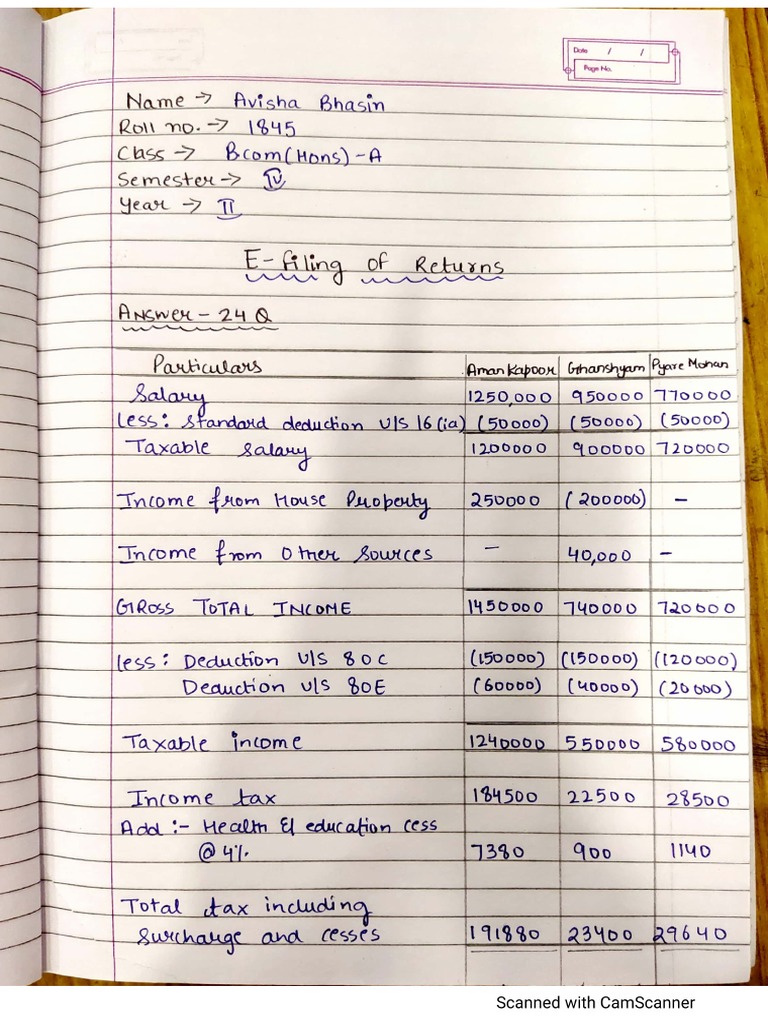 Date / /
Page No.
Name → Avisha Bhasin
Roll no. → 1845
Class → Bcom(Hons)-A
Semester → IV
Year → II
E-filing of Returns
ANSWER - 24 Q
Particulars Aman Kapoor Ghanshyam Pyare Mohan
Salary 1250,000 950000 770000
less: Standard deduction U/S 16(ia) (50000) (50000) (50000)
Taxable salary 1200000 900000 720000
Income from House Property 250000 (200000) -
Income from Other Sources - 40,000 -
GROSS TOTAL INCOME 1450000 740000 720000
less: Deduction U/S 80C (150000) (150000) (120000)
Deduction U/S 80E (60000) (40000) (20000)
Taxable income 1240000 550000 580000
Income tax 184500 22500 28500
Add :- Health & education cess
@ 4%. 7380 900 1140
Total tax including
Surcharge and cesses 191880 23400 29640
Scanned with CamScanner